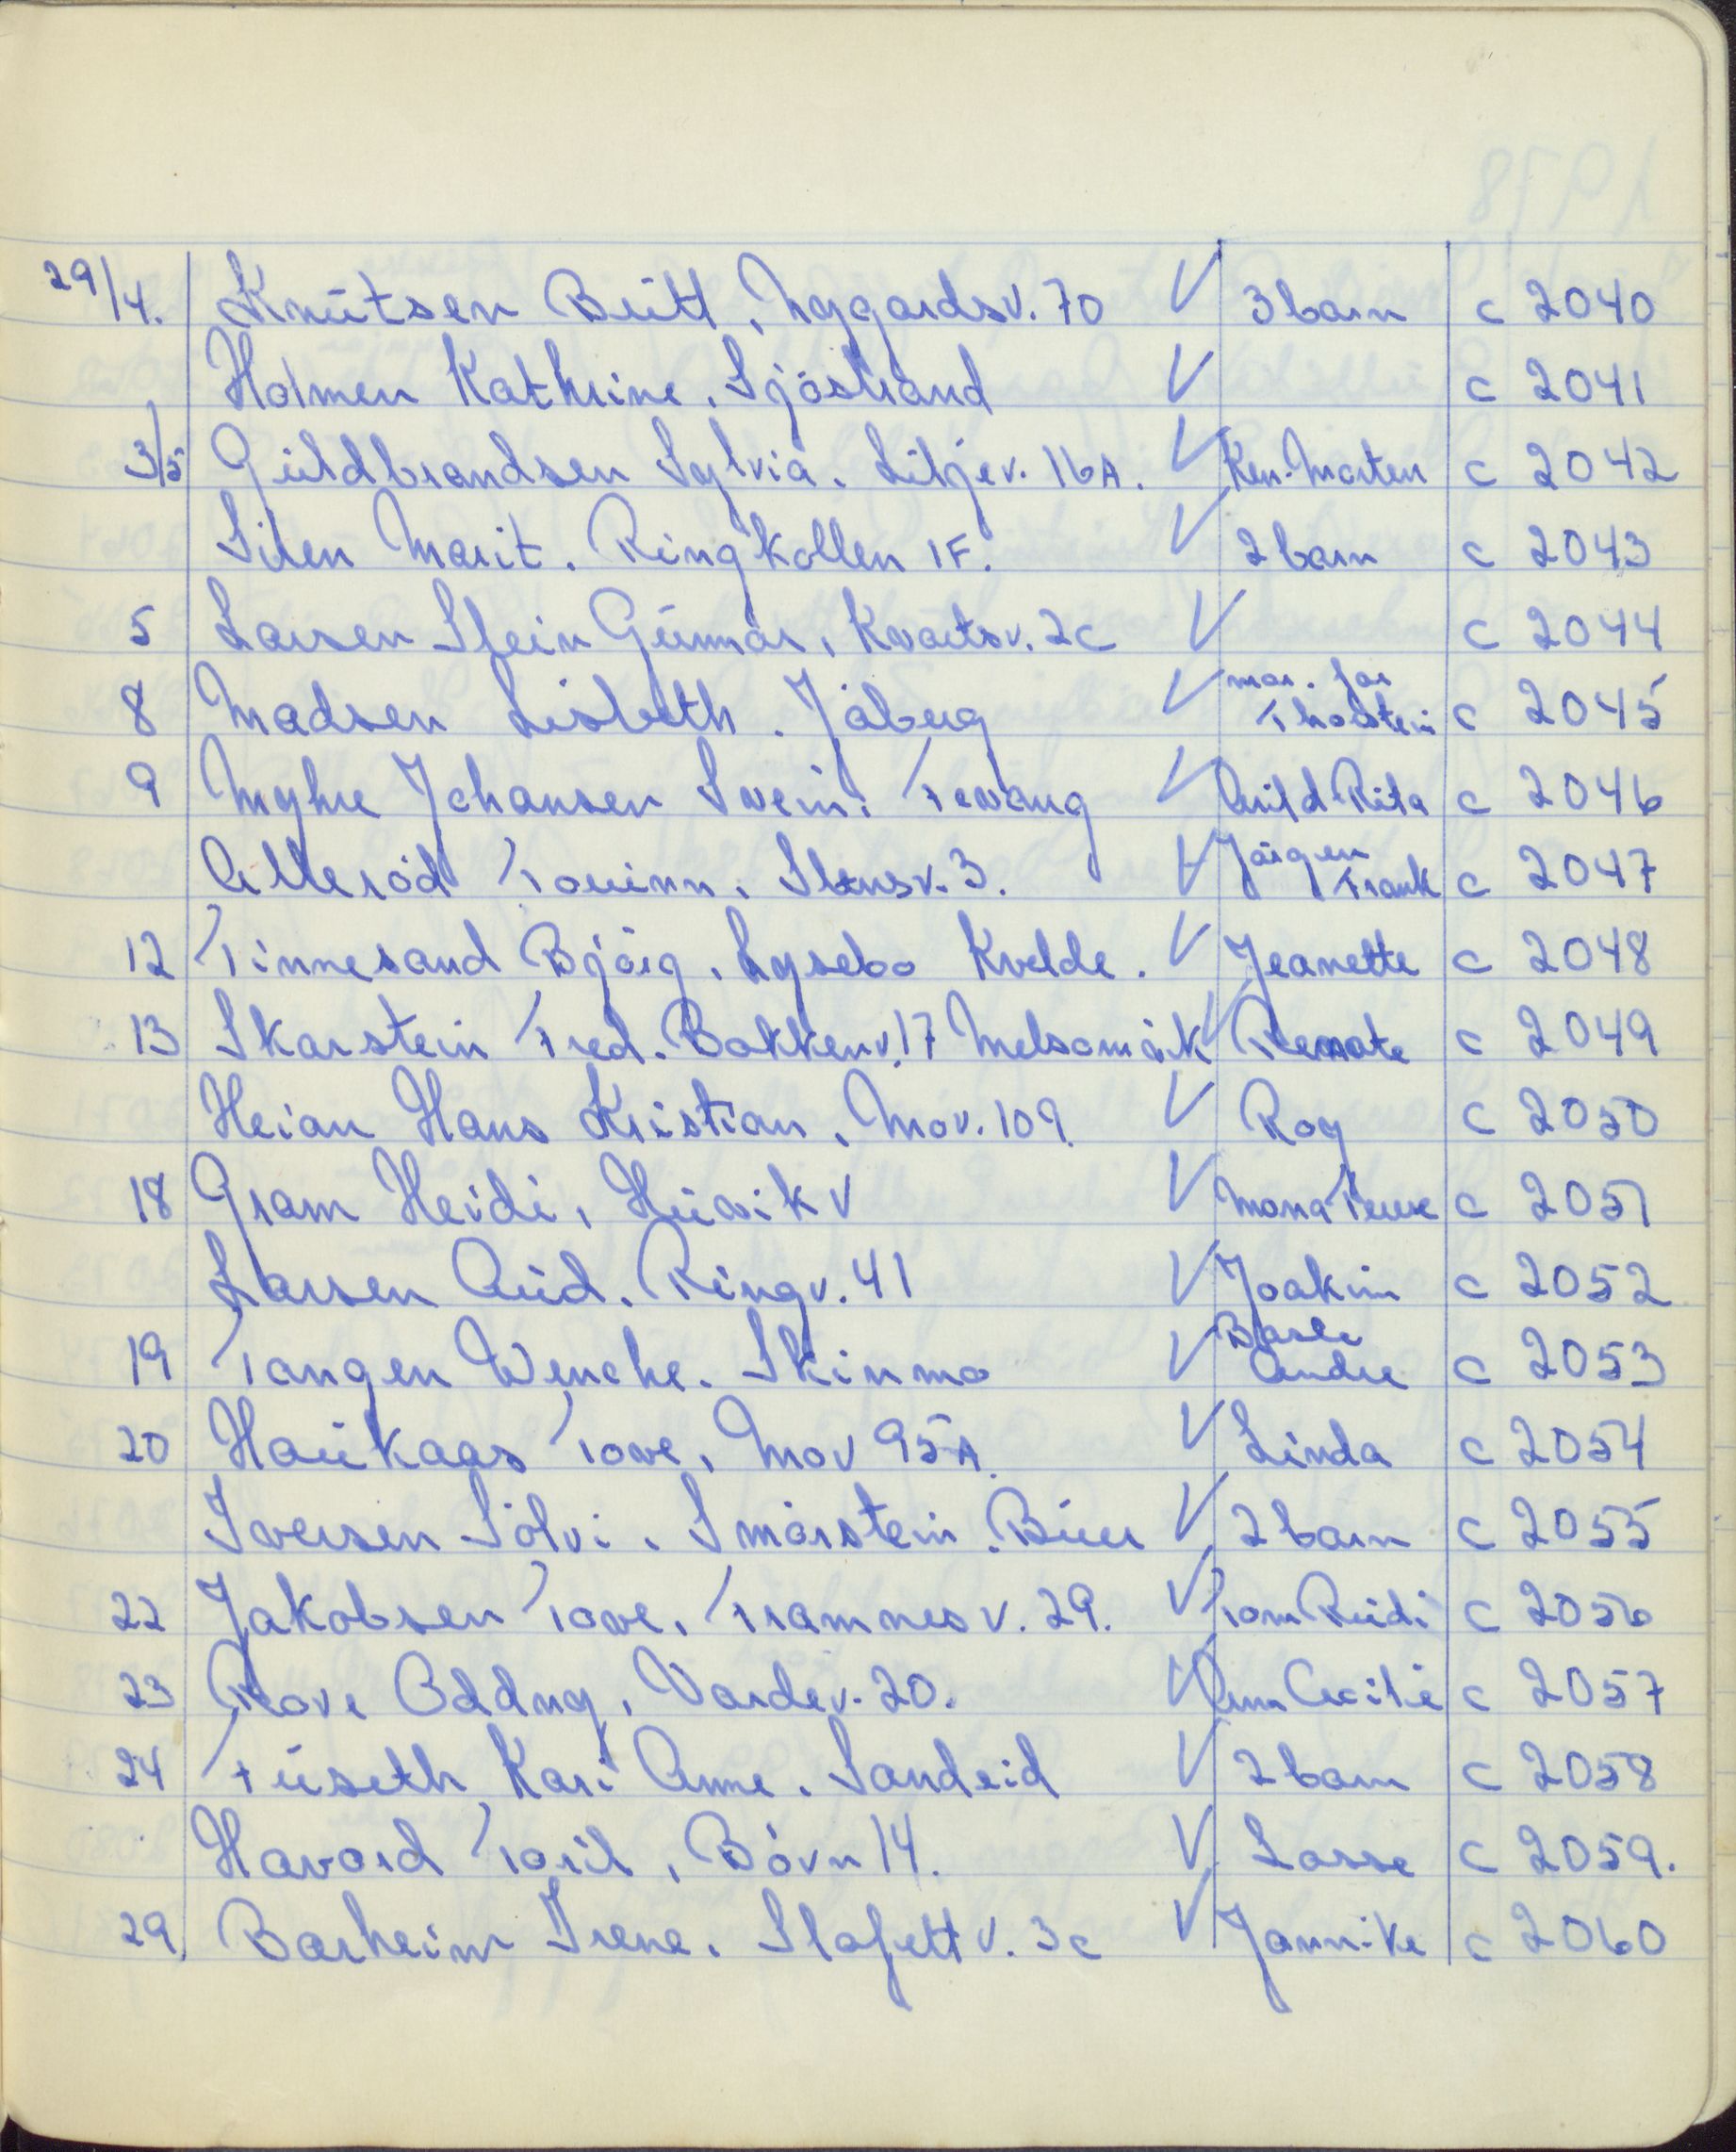 29/4. Knutsen Britt, Nygardsv. 70 V 3 barn c 2040
Holmen Kathrine, Sjöstrand V c 2041
3/5 Guldbrandsen Sylvia. Liljev. 16A. V Ken-Morten c 2042
Silen Marit. Ringkollen 1F. V 2 barn c 2043
5 Larsen Stein Gunnar, Kvartsv. 2c V c 2044
8 Madsen Lisbeth. Jåberg V mor. far Thorstein c 2045
9 Myhre Johansen Svein. Tevang V Arild-Rita c 2046
Alleröd Torunn, Stensv. 3. V Jörgen Frank c 2047
12 Tinnesand Björg, Lysebo Kvelde. V Jeanette c 2048
13 Skarstein Fred. Bakkenv. 17 Melsomvik V Renate c 2049
Heian Hans Kristian, Mov. 109. V Roy c 2050
18 Gram Heidi, Huvik V V Mona Terese c 2051
Larsen Aud. Ringv. 41 V Joakim c 2052
19 Tangen Wenche. Skinmo V André c 2053
20 Haukaas Tove, Mov 95A. V Linda c 2054
Iversen Sölvi. Smörstein. V 2 barn c 2055
22 Jakobsen Tove, Framnesv. 29. V Tom Rudi c 2056
23 Rove Oddny, Vardev. 20. V Ann Cecilie c 2057
24 Fuseth Kari Anne. Sandeid V 2 barn c 2058
Havard Toril, Bövn 14. V Lasse c 2059.
29 Barheim Irene. Stafettv. 3c V Jannike c 2060